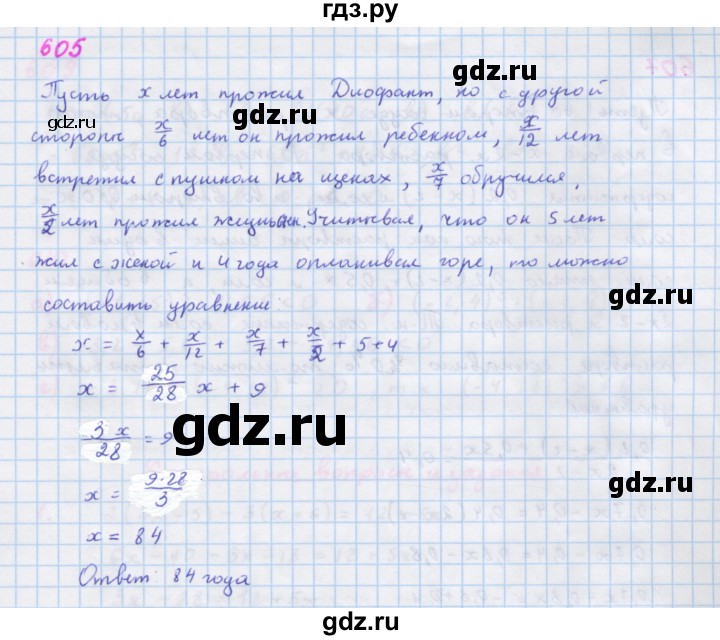 гдз.ру
605
Пусть x лет прожил Диофант, но с другой
стороны x/6 лет он прожил ребенком, x/12 лет
встретил с пушком на щеках, x/7 обручился,
x/2 лет прожил Учитывая, что он 5 лет
жил с женой и 4 года оплакивал горе, то можно
составить уравнение:
x = x/6 + x/12 + x/7 + x/2 + 5+4
x = 25/28 x + 9
3x/28 = 9
x = 9·28/3
x = 84
Ответ: 84 года
gdz.ru
gdz.ru
gdz.ru
gdz.ru
gdz.ru
gdz.ru
gdz.ru
gdz.ru